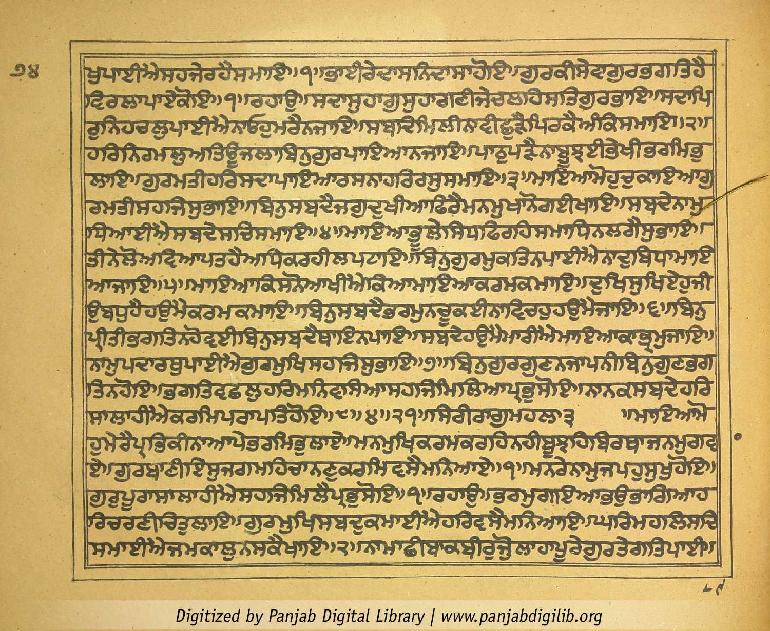 ੭੪
ਖੁਪਾਈਐਸਹਜੇਰਹੈਸਮਾਇ॥੧॥ਭਾਈਰੇਦਾਸਨਿਦਾਸਾਹੋਇ॥ਗੁਰਕੀਸੇਵਾਗੁਰਭਗਤਿਹੈ
ਵਿਰਲਾਪਾਏਕੋਇ॥੧॥ਰਹਾਉ॥ਸਦਾਸੁਹਾਗੁਸੁਹਾਗਣੀਜੇਚਲਹਿਸਤਿਗੁਰਭਾਇ॥ਸਦਾਪਿ
ਰੁਨਿਹਚਲੁਪਾਈਐਨਾਓਹੁਮਰੈਨਜਾਇ॥ਸਬਦਿਮਿਲੀਨਾਵੀਛੁੜੈਪਿਰਕੈਅੰਕਿਸਮਾਇ॥੨॥
ਹਰਿਨਿਰਮਲੁਅਤਿਊਜਲਾਬਿਨੁਗੁਰਪਾਇਆਨਜਾਇ॥ਪਾਠੁਪੜੈਨਾਬੂਝਈਭੇਖੀਭਰਮਿਭੁ
ਲਾਇ॥ਗੁਰਮਤੀਹਰਿਸਦਾਪਾਇਆਰਸਨਾਹਰਿਰਸੁਸਮਾਇ॥੩॥ਮਾਇਆਮੋਹੁਚੁਕਾਇਆਗੁ
ਰਮਤੀਸਹਜਿਸੁਭਾਇ॥ਬਿਨੁਸਬਦੈਜਗੁਦੁਖੀਆਫਿਰੈਮਨਮੁਖਾਨੋਗਈਖਾਇ॥ਸਬਦੇਨਾਮੁ
ਧਿਆਈਐਸਬਦੇਸਚਿਸਮਾਇ॥੪॥ਮਾਇਆਭੂਲੇਸਿਧਫਿਰਹਿਸਮਾਧਿਨਲਗੈਸੁਭਾਇ॥
ਤੀਨੇਲੋਅਵਿਆਪਤਹੈਅਧਿਕਰਹੀਲਪਟਾਇ॥ਬਿਨੁਗੁਰਮੁਕਤਿਨਪਾਈਐਨਾਦੁਬਿਧਾਮਾਇ
ਆਜਾਇ॥੫॥ਮਾਇਆਕਿਸਨੋਆਖੀਐਕਿਆਮਾਇਆਕਰਮਕਮਾਇ॥ਦੁਖਿਸੁਖਿਏਹੁਜੀ
ਉਬਧੁਹੈਹਉਮੈਕਰਮਕਮਾਇ॥ਬਿਨੁਸਬਦੈਭਰਮੁਨਚੂਕਈਨਾਵਿਚਹੁਹਉਮੈਜਾਇ॥੬॥ਬਿਨੁ
ਪ੍ਰੀਤੀਭਗਤਿਨਹੋਵਈਬਿਨੁਸਬਦੈਥਾਇਨਪਾਇ॥ਸਬਦੇਹਉਮੈਮਾਰੀਐਮਾਇਆਕਾਭ੍ਰਮੁਜਾਇ॥
ਨਾਮੁਪਦਾਰਥੁਪਾਈਐਗੁਰਮੁਖਿਸਹਜਿਸੁਭਾਇ॥੭॥ਬਿਨੁਗੁਰਗੁਣਨਜਾਪਨੀਬਿਨੁਗੁਣਭਗ
ਤਿਨਹੋਇ॥ਭਗਤਿਵਛਲੁਹਰਿਮਨਿਵਸਿਆਸਹਜਿਮਿਲਿਆਪ੍ਰਭੁਸੋਇ॥ਨਾਨਕਸਬਦੇਹਰਿ
ਸਾਲਾਹੀਐਕਰਮਿਪਰਾਪਤਿਹੋਇ॥੮॥੪॥੨੧॥ਸਿਰੀਰਾਗੁਮਹਲਾ੩ ॥ਮਾਇਆਮੋ
ਹੁਮੇਰੈਪ੍ਰਭਿਕੀਨਾਆਪੇਭਰਮਿਭੁਲਾਏ॥ਮਨਮੁਖਿਕਰਮਕਰਹਿਨਹੀਬੂਝਹਿਬਿਰਥਾਜਨਮੁਗਵਾ
ਏ॥ਗੁਰਬਾਣੀਇਸੁਜਗਮਹਿਚਾਨਣੁਕਰਮਿਵਸੈਮਨਿਆਏ॥੧॥ਮਨਰੇਨਾਮੁਜਪਹੁਸੁਖੁਹੋਇ॥
ਗੁਰੁਪੂਰਾਸਾਲਾਹੀਐਸਹਜਿਮਿਲੈਪ੍ਰਭੁਸੋਇ॥੧॥ਰਹਾਉ॥ਭਰਮੁਗਇਆਭਉਭਾਗਿਆਹ
ਰਿਚਰਣੀਚਿਤੁਲਾਇ॥ਗੁਰਮੁਖਿਸਬਦੁਕਮਾਈਐਹਰਿਵਸੈਮਨਿਆਇ॥ਘਰਿਮਹਲਿਸਚਿ
ਸਮਾਈਐਜਮਕਾਲੁਨਸਕੈਖਾਇ॥੨॥ਨਾਮਾਛੀਬਾਕਬੀਰੁਜੋੁਲਾਹਾਪੂਰੇਗੁਰਤੇਗਤਿਪਾਈ॥
Digitized by Panjab Digital Library | www.panjabdigilib.org